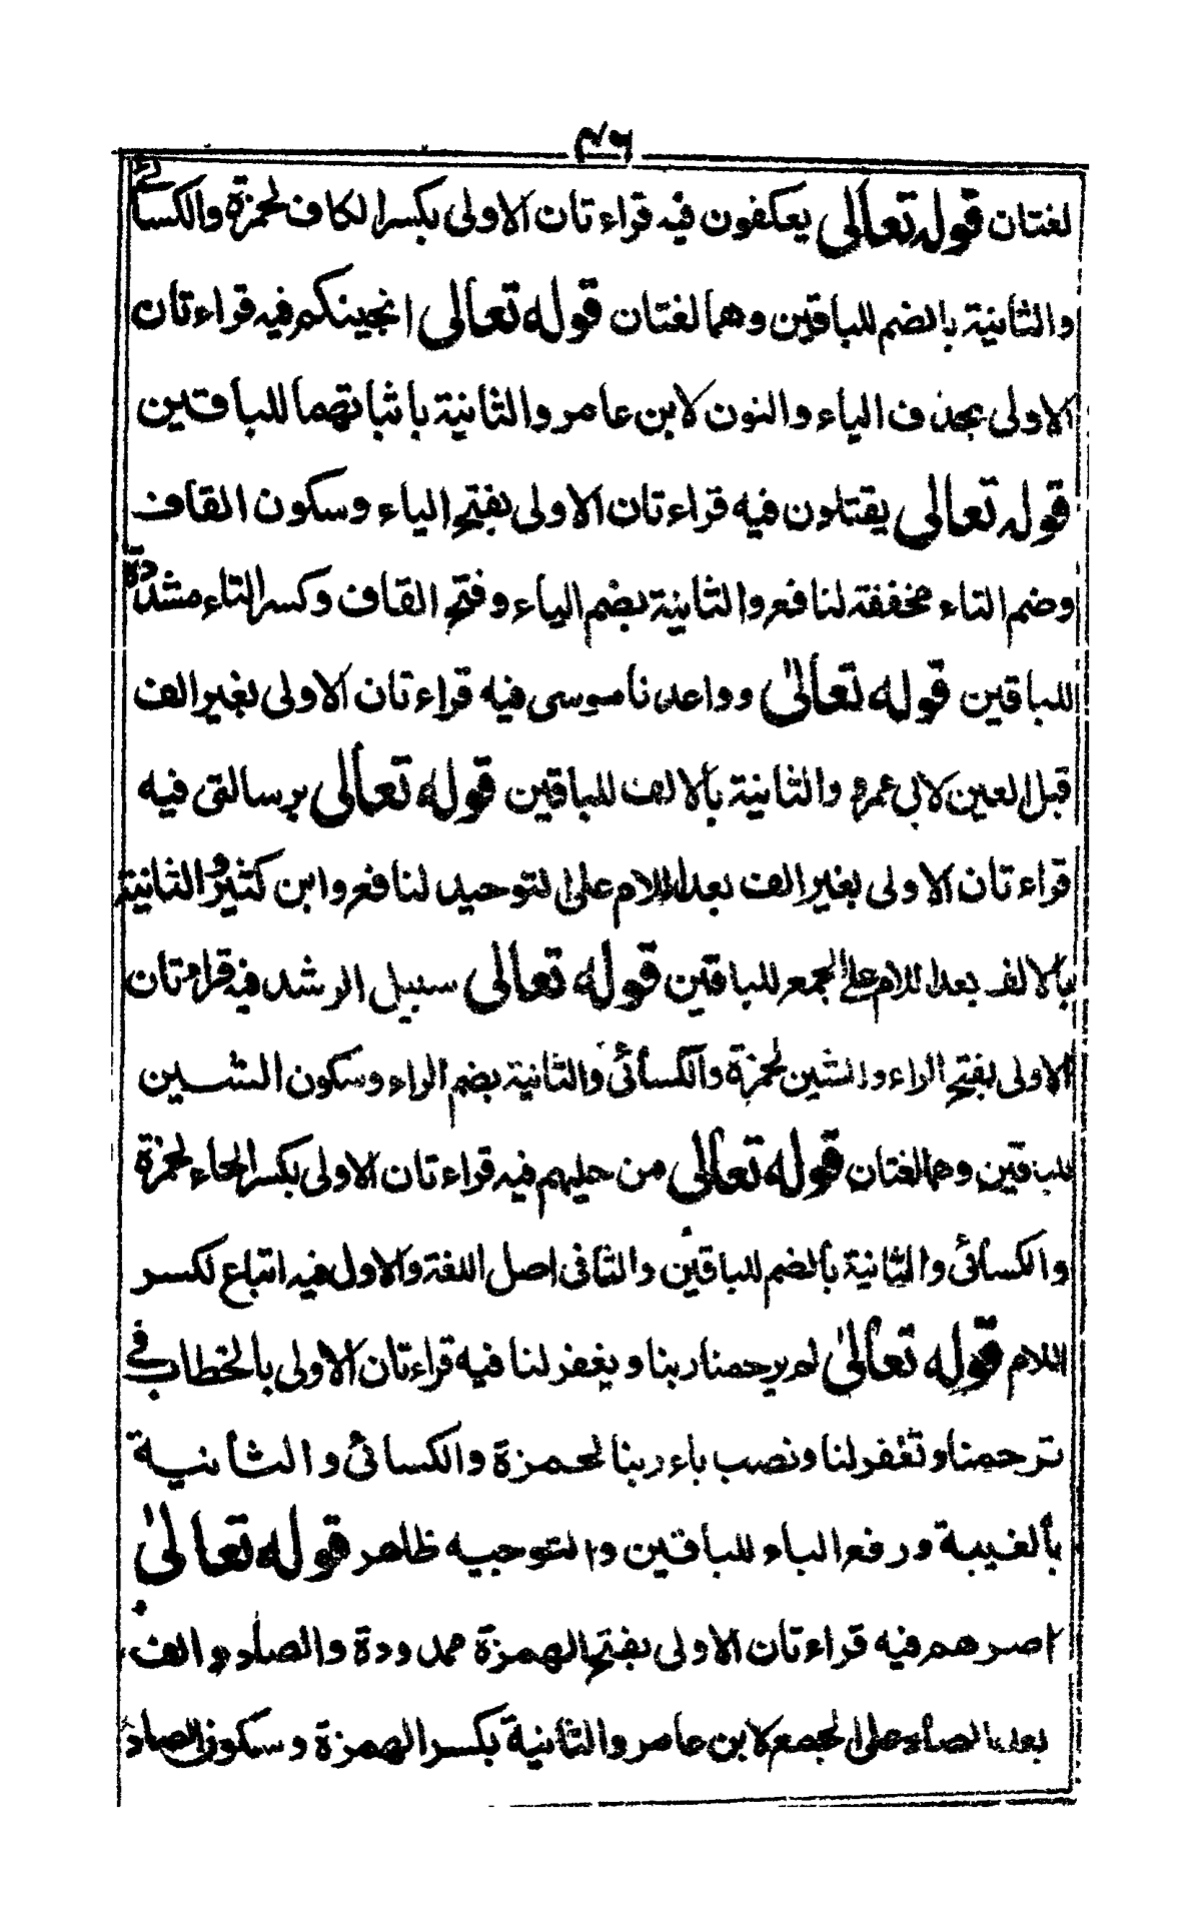 ٤٦
لغتان قوله تعالى يعكفون فيه قراءتان الاولى بكسر الكاف لحمزة والكسائي
والثانية بالضم للباقين وهما لغتان قوله تعالى انجينكم فيه قراءتان
الاولى بحذف الياء والنون لابن عامر والثانية باثباتهما للباقين
قوله تعالى يقتلون فيه قراءتان الاولى بفتح الياء وسكون القاف
وضم التاء مخففة لنافع والثانية بضم الياء وفتح القاف وكسر التاء مشددة
للباقين قوله تعالىٰ وواعدنا موسى فيه قراءتان الاولى بغير الف
قبل العين لابى عمرو والثانية بالالف للباقين قوله تعالى برسالتى فيه
قراءتان الاولى بغير الف بعد اللام على التوحيد لنافع وابن كثير والثانية
بالالف بعد اللام على الجمع للباقين قوله تعالى سبيل الرشد فيه قراءتان
الاولى بفتح الراء والشين لحمزة والكسائى والثانية بضم الراء وسكون الشين
للباقين وهما لغتان قوله تعالى من حليهم فيه قراءتان الاولى بكسر الحاء لحمزة
والكسائى والثانية بالضم للباقين والثانى اصل اللغة والاول فيه اتباع لكسر
اللام قوله تعالىٰ لم يرحمنا ربنا ويغفر لنا فيه قراءتان الاولى بالخطاب في
ترحمنا وتغفر لنا ونصب باء ربنا لحمزة والكسائى والثانية
بالغيبة ورفع الباء للباقين والتوجيه ظاهر قوله تعالىٰ
اصرهم فيه قراءتان الاولى بفتح الهمزة ممدودة والصاد والف
بعد الصاد على الجمع لابن عامر والثانية بكسر الهمزة وسكون الصاد